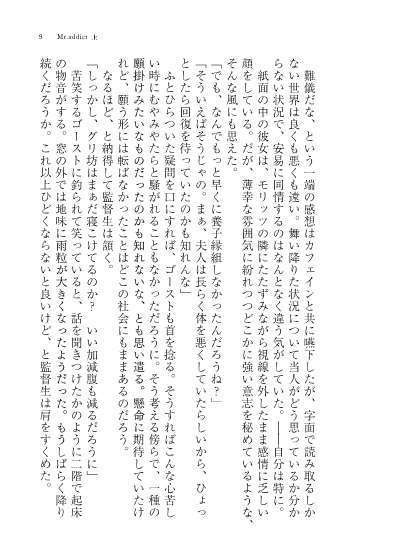 9　Mr.addict 上
難儀だな、という一端の感想はカフェインと共に嚥下したが、字面で読み取るしか
ない世界は良くも悪くも遠い。舞い降りた状況について当人がどう思っているか分か
らない状況で、安易に同情するのはなんとなく違う気がしていた。――自分は特に。
紙面の中の彼女は、モリッツの隣にたたずみながら視線を外したまま感情に乏しい
顔をしている。だが、薄幸な雰囲気に紛れつつどこかに強い意志を秘めているような、
そんな風にも思えた。
「でも、なんでもっと早くに養子縁組しなかったんだろうね？」
「そういえばそうじゃの。まぁ、夫人は長らく体を悪くしていたらしいから、ひょっ
としたら回復を待っていたのかも知れんな」
ふとひらついた疑問を口にすれば、ゴーストも首を捻る。そうすればこんな心苦し
い時にむやみやたらと騒がれることもなかっただろうに。そう考える傍らで、一種の
願掛けみたいなものだったのかも知れないな、とも思い遣る。懸命に期待していたけ
れど、願う形には転ばなかったことはどこの社会にもままあるのだろう。
なるほど、と納得して監督生は頷く。
「しっかし、グリ坊はまぁだ寝こけてるのか？　いい加減腹も減るだろうに」
苦笑するゴーストに釣られて笑っていると、話を聞きつけたかのように二階で起床
の物音がする。窓の外では地味に雨粒が大きくなったようだった。もうしばらく降り
続くだろうか。これ以上ひどくならないと良いけど、と監督生は肩をすくめた。